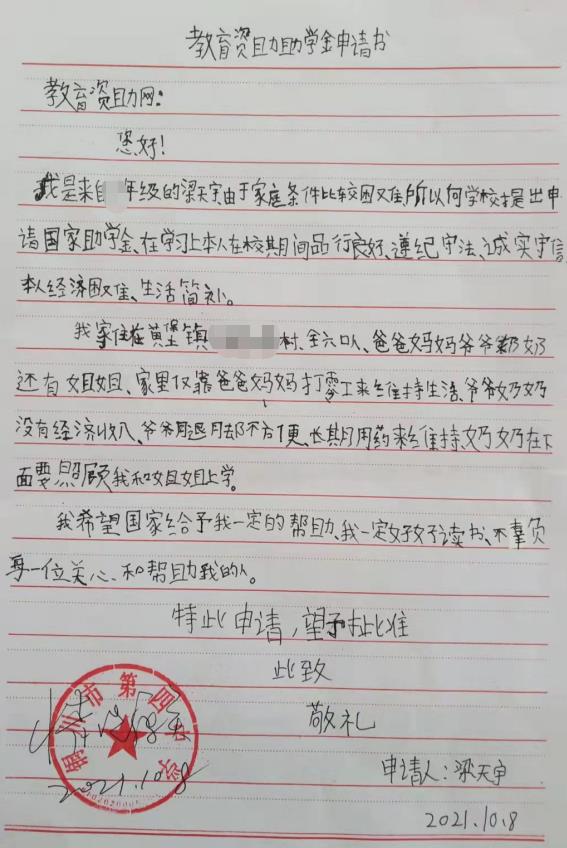 教育资助助学金申请书
教育资助网：
您好！
我是来自 年级的梁天宇由于家庭条件比较困难所以向学校提出申
请国家助学金、在学习上本人在校期间品行良好、遵纪守法、诚实守信
本人经济困难、生活简朴。
我家住在黄堡镇 村、全六口人、爸爸妈妈爷爷奶奶
还有姐姐、家里仅靠爸爸妈妈打零工来维持生活、爷爷奶奶
没有经济收入、爷爷用退月却不方便、长期用药来维持、奶奶在下
面要照顾我和姐姐上学。
我希望国家给予我一定的帮助、我一定好好读书、不辜负
每一位关心、和帮助我的人。
特此申请，望予批准
此致
敬礼
铜川市第四中学
2021.10.8
申请人：梁天宇
2021.10.8